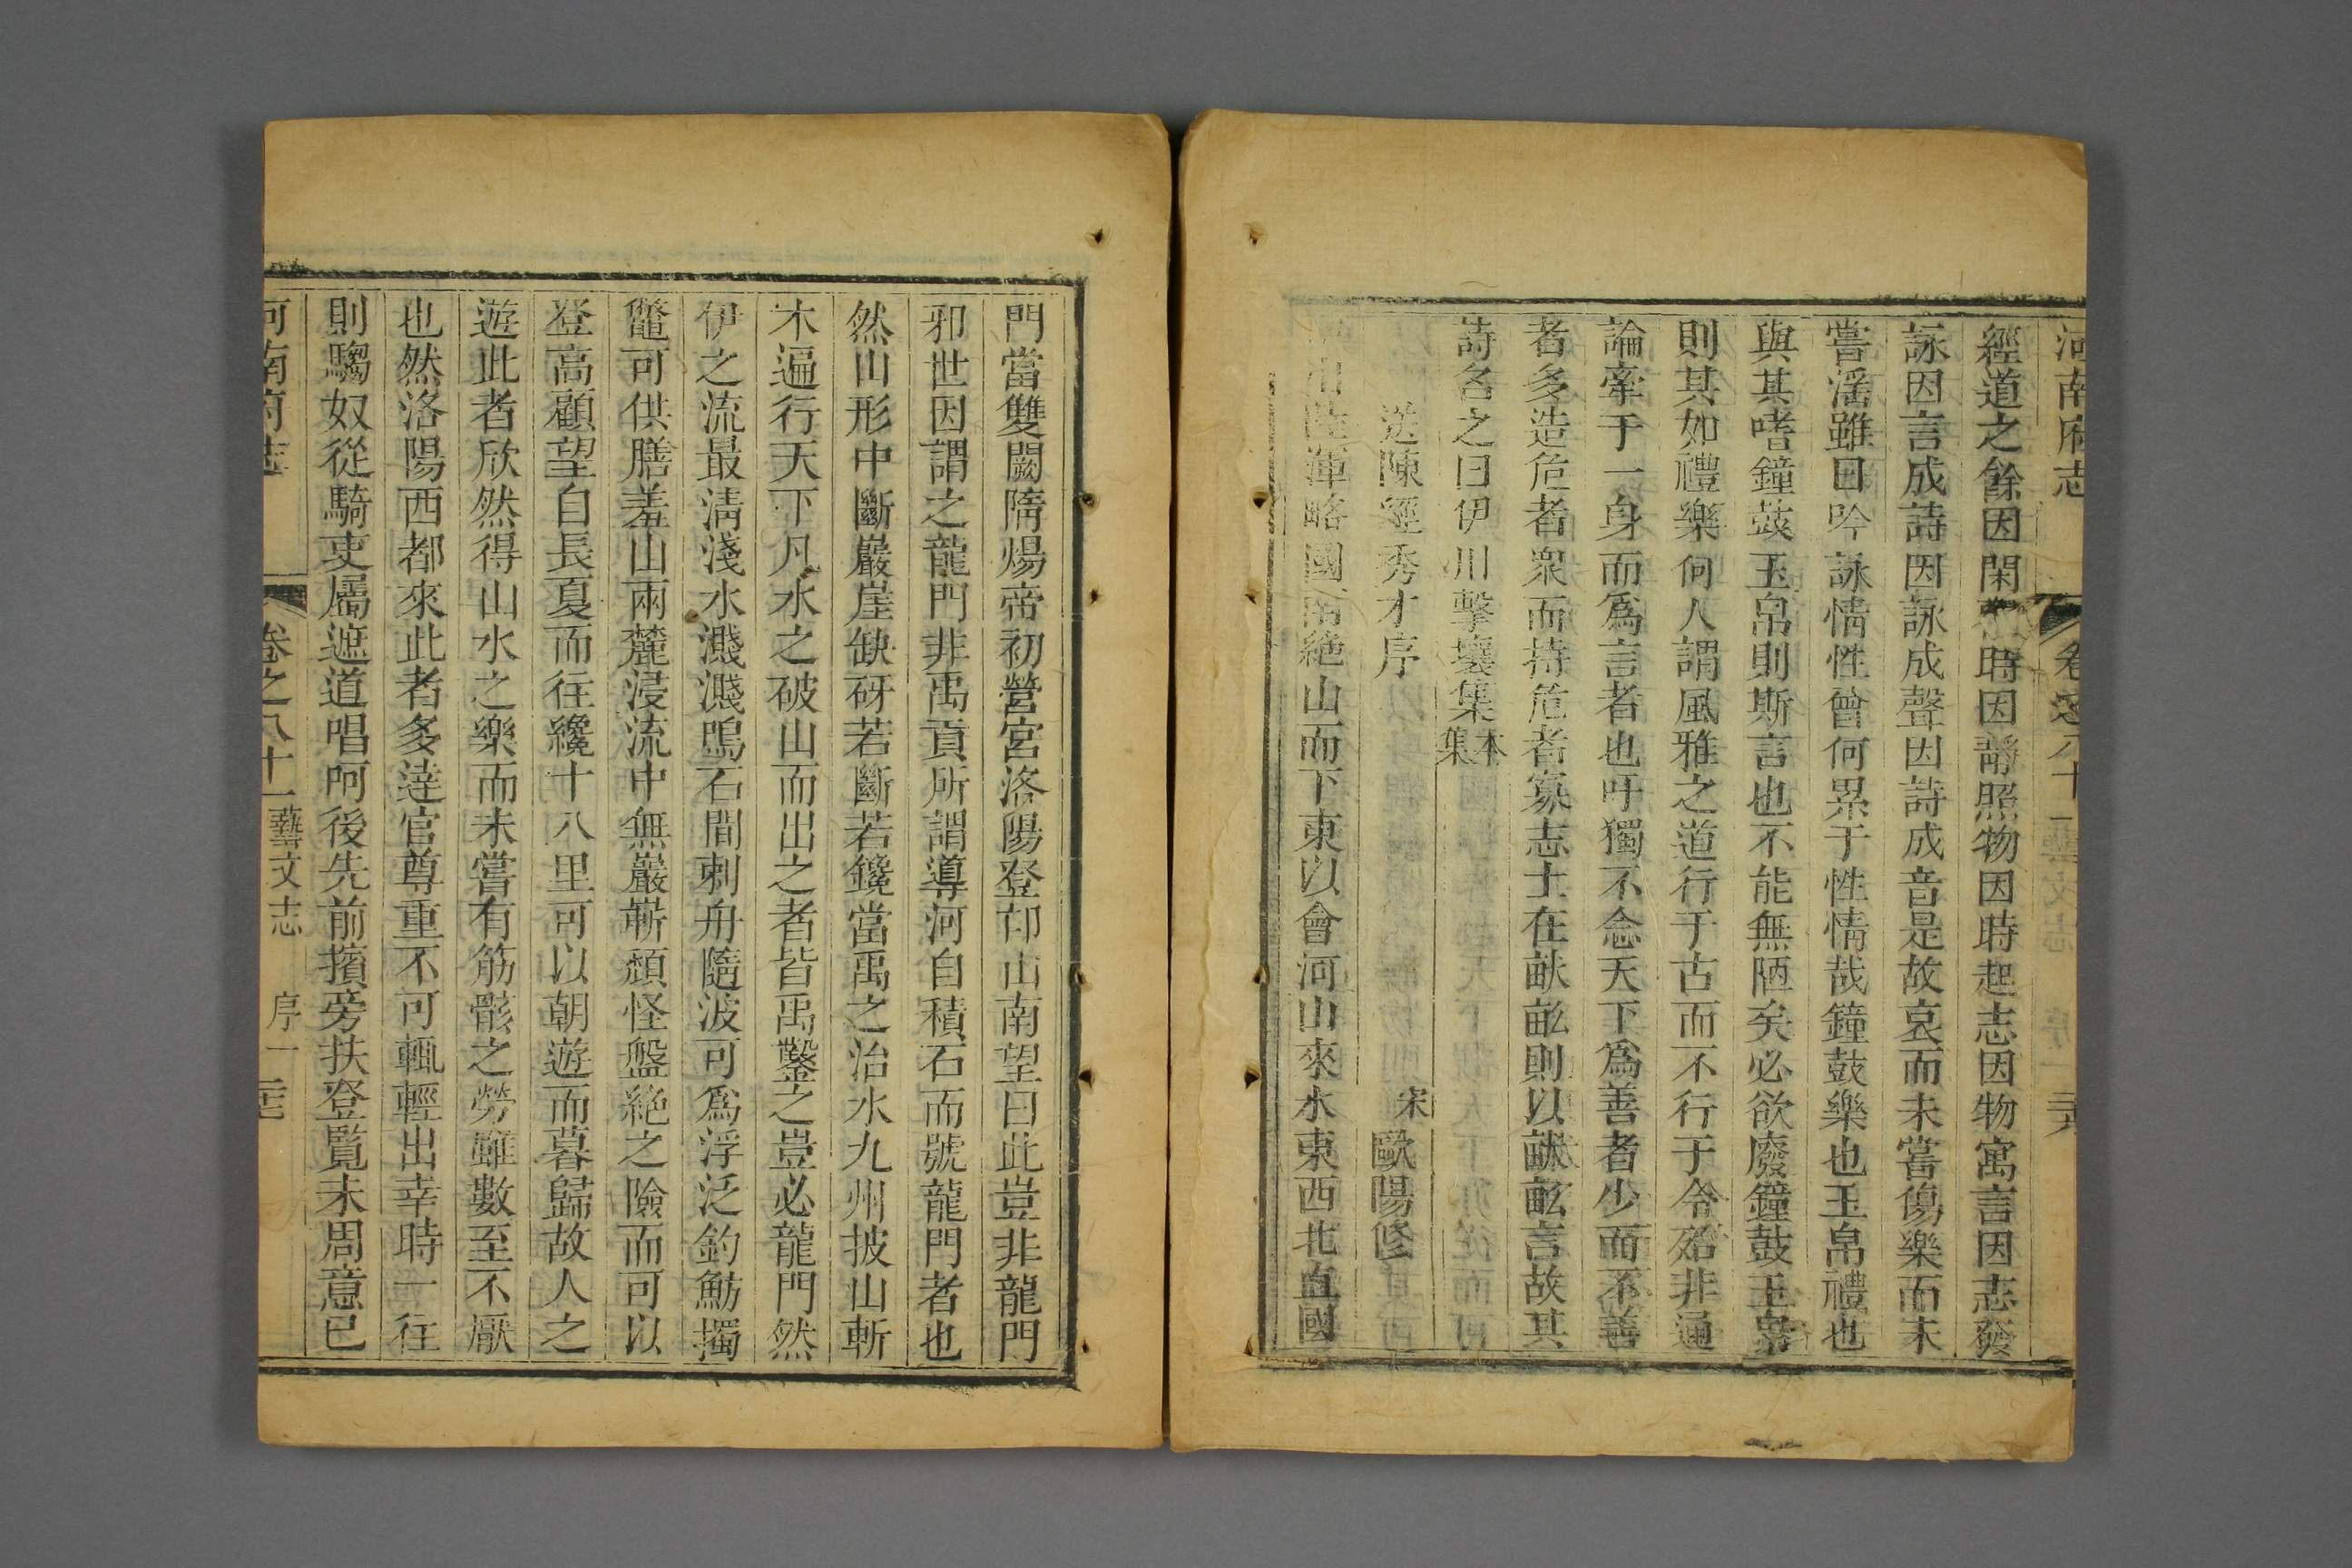 河南府志 卷之八十一 藝文志 序一 二六
經道之餘因閑觀時因靜照物因時起志因物寓言因志發
詠因言成詩因詠成聲因詩成音是故哀而未嘗傷樂而未
嘗淫雖曰吟詠情性曾何累于性情哉鐘鼓樂也玉帛禮也
與其嗜鐘鼓玉帛則斯言也不能無陋矣必欲廢鐘鼓玉帛
則其如禮樂何人謂風雅之道行于古而不行于今殆非通
論牽于一身而爲言者也吁獨不念天下爲善者少而不善
者多造危者衆而持危者寡志士在畎畝則以畎畝言故其
詩名之曰伊川擊壤集本集
送陳經秀才序 宋 歐陽修
出陸渾略國南絶山而下東以會河山來水東西北直國
門當雙闕隋煬帝初營宮洛陽登邙山南望曰此豈非龍門
邪世因謂之龍門非禹貢所謂導河自積石而號龍門者也
然山形中斷巖崖缺砑若斷若鑱當禹之治水九州披山斬
木遍行天下凡水之破山而出之者皆禹鑿之豈必龍門然
伊之流最清淺水濺濺鳴石間刺舟隨波可爲浮泛釣魴擉
鼈可供膳羞山兩麓浸流中無巖嶄頽怪盤絶之險而可以
登高顧望自長夏而往纔十八里可以朝遊而暮歸故人之
遊此者欣然得山水之樂而未嘗有筋骸之勞雖數至不厭
也然洛陽西都來此者多逹官尊重不可輒輕出幸時一往
則騶奴從騎吏屬遮道唱呵後先前擯旁扶登覽未周意已
河南府志 卷之八十一 藝文志 序一